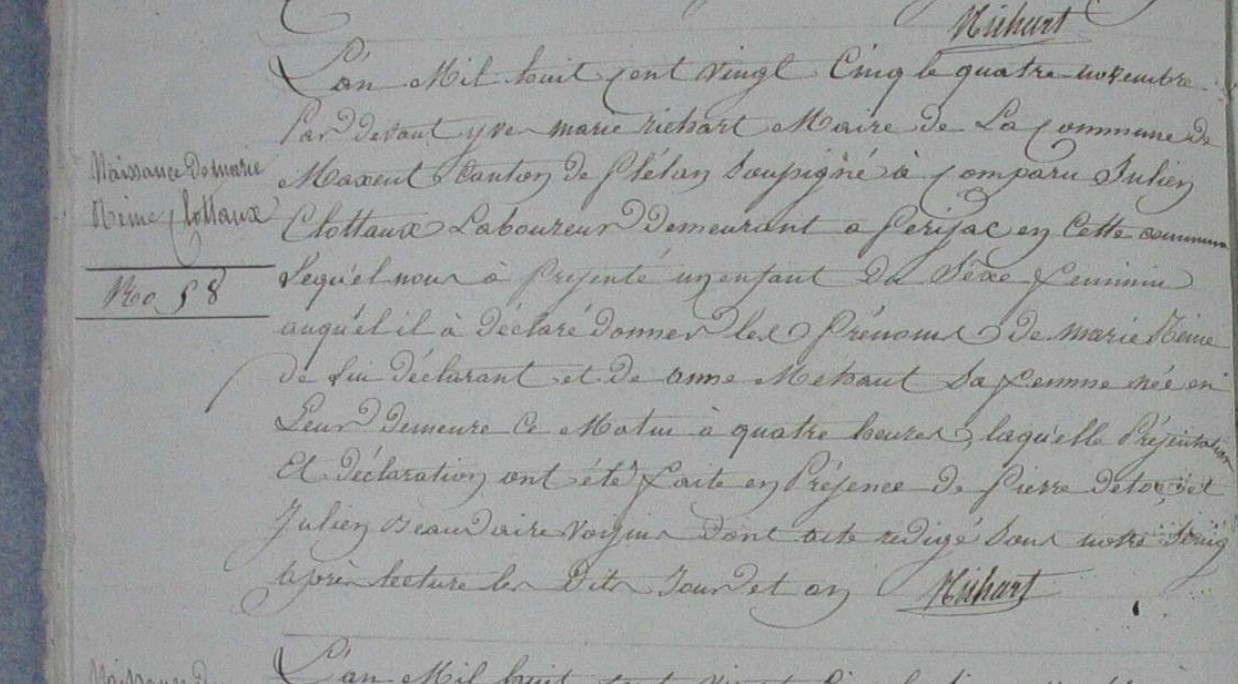 Richart
L'an Mil huit cent vingt Cinq le quatre novembre
Par devant yve marie richart Maire de La Commune de
Maxent Canton de Plélan Soussigné à Comparu Julien
Clottaux Laboureur Demeurant a Perijac en Cette commune
Lequel nous à Présenté un enfant Du Séxe feminin
auquel il à Déclaré Donner les Prénoms De marie Reine
de Lui déclarant et de anne Mehaut Sa femme née en
Leur Demeure Ce Matin à quatre heures, laquelle Présentation
Et Déclaration ont été faite en Présence de Pierre et
Julien Beaudaire Voisins Dont acte redigé Sous notre Seing
après lecture les Dits Jour et an Richart
Naissance De marie
Reine Clottaux
No 58
L'an Mil huit cent
Naissance d